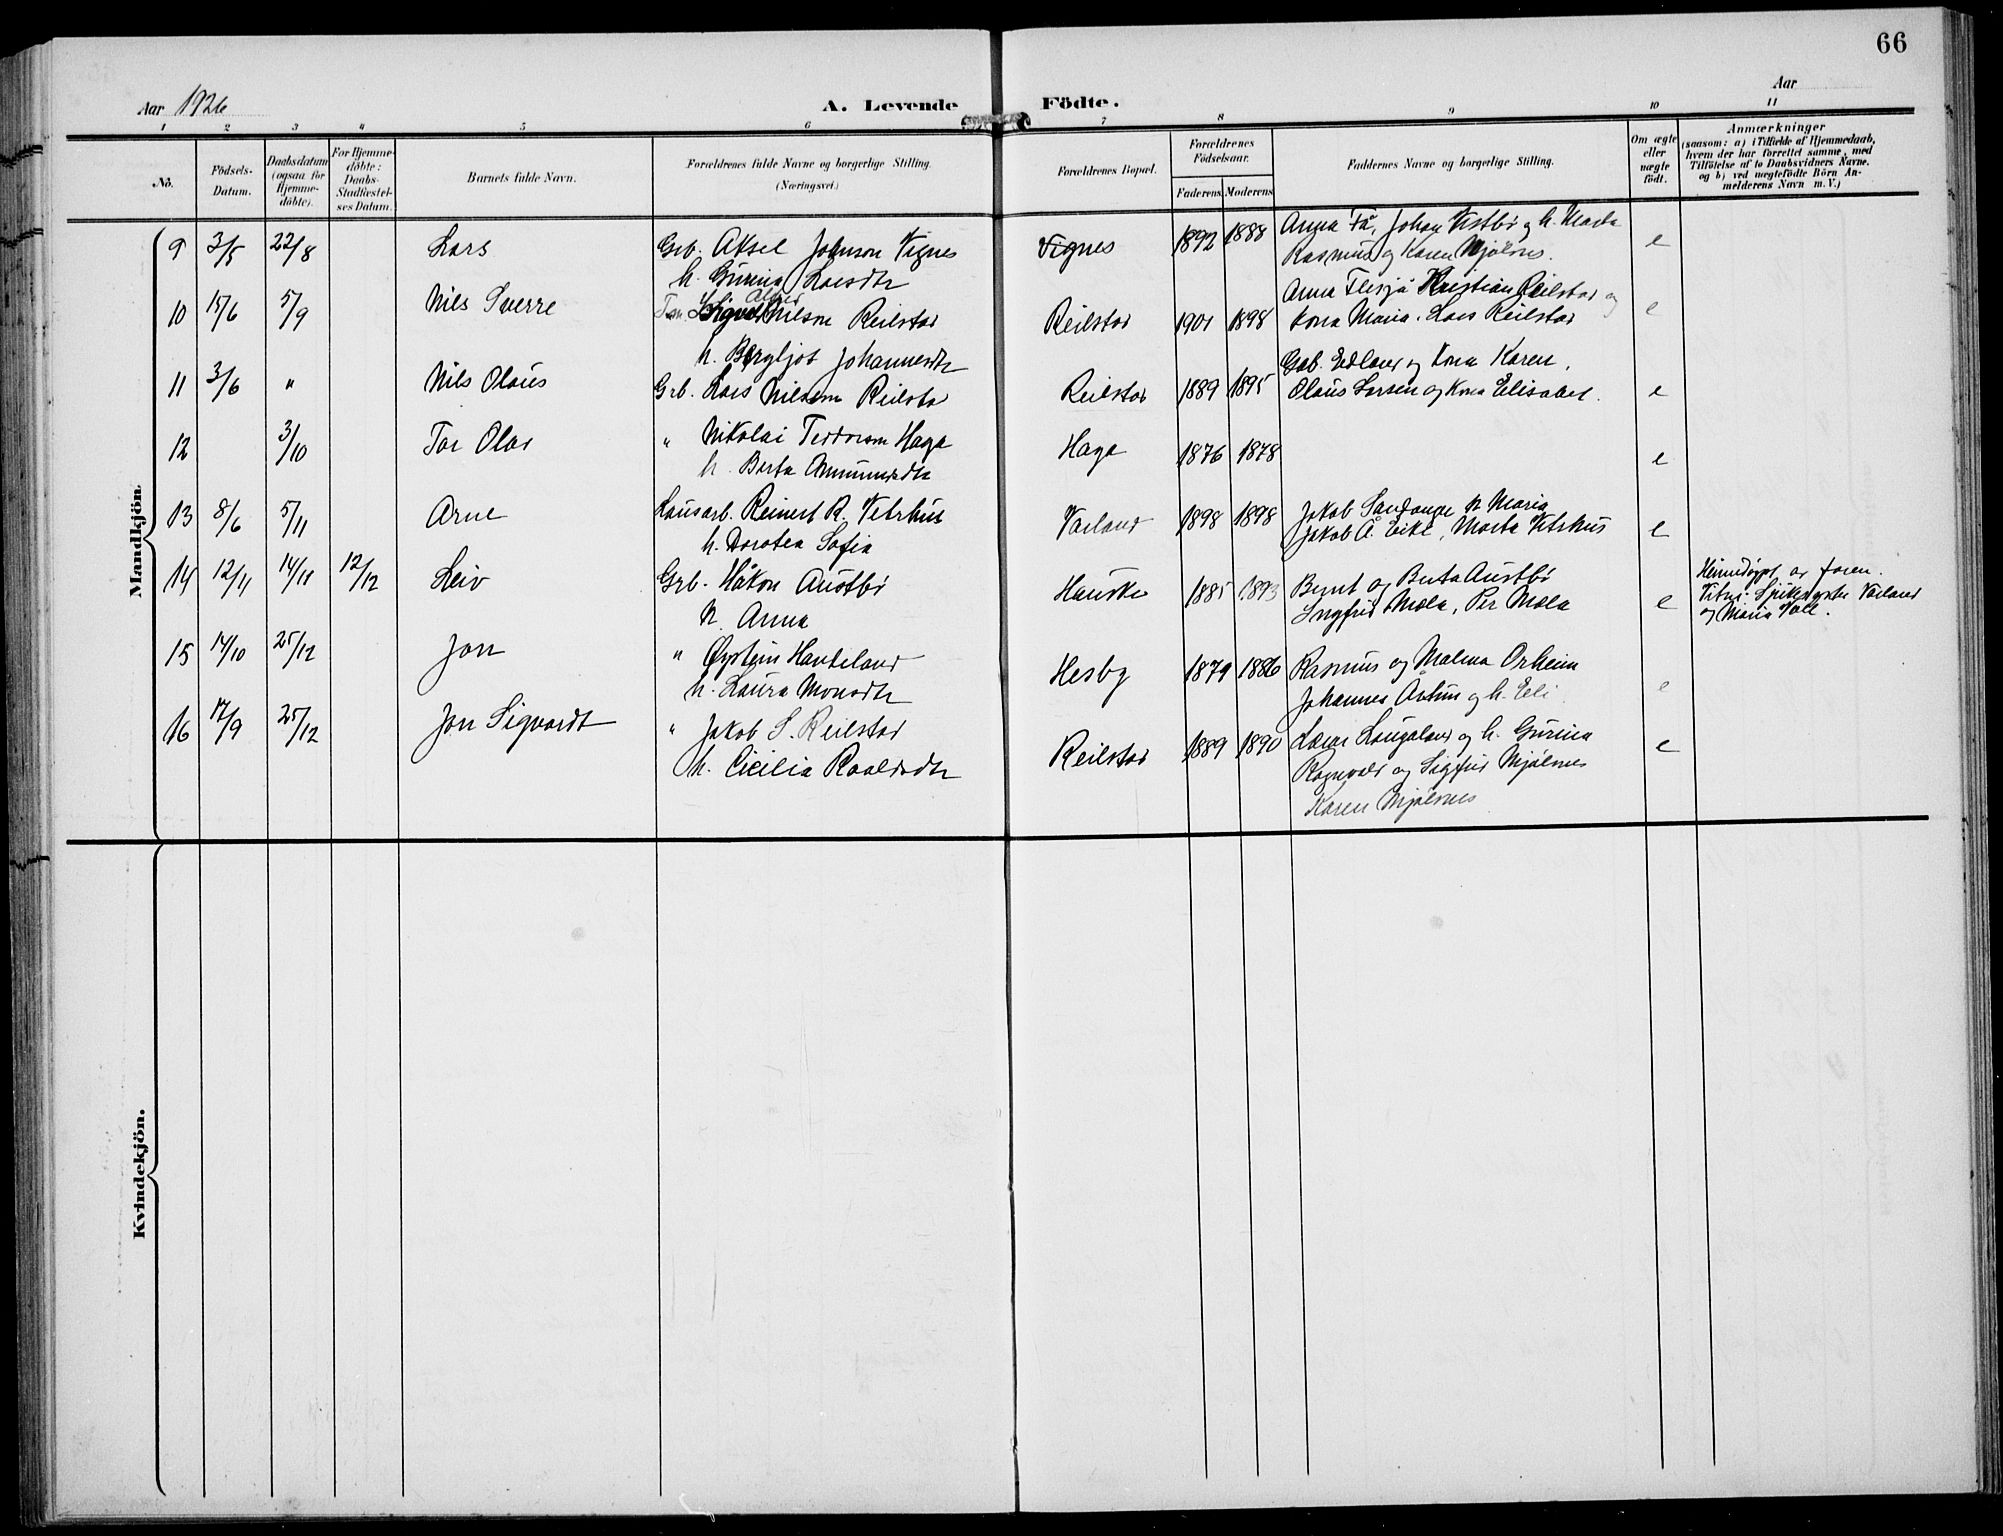 66
Aar 1926
A. Levende Födte.
Aar
1 2 3 4 5 6 7 8 9 10 11
No.
Födsels-Datum.
Daabsdatum (ogsaa for Hjemme-döbte).
For Hjemme-döbte: Daabs-Stadfæstel-ses Datum.
Barnets fulde Navn.
Forældrenes fulde Navne og borgerlige Stilling.
(Næringsvei.)
Forældrenes Bopæl.
Forældrenes Födselsaar.
Faderens Moderens
Faddernes Navne og borgerlige Stilling.
Om ægte eller uægte födt.
Anmærkninger
(saasom: a) i Tilfælde af Hjemmedaab,
hvem der har forrettet samme, med
Tilföielse af to Daabsvidners Navne.
og b) ved uægtefödte Börn An-
melderens Navn m. V.)
Mandkjön.
9 3/5 22/8 Lars Grb. Aksel Johnson Vignes Vignes 1892 1888 Anna Få, Johan Vestbø og h. Marta e
h. Gurina Larsdtr Rasmus og Karen Mjølsnes.
10 15/6 5/9 Nils Sverre Nilson Reilstad Reilstad 1901 1898 Anna Flesjå Kristian Reilstad og e
h. Bergljot Johannesdtr kona Maria. Lars Reilstad
11 3/6 " Nils Olaus Grb. Lars Nilsson Reilstad Reilstad 1889 1895 Gab. Edland og kona Karen. e
Olaus Larsen og kona Elisabet.
12 3/10 Tor Olav " Nikolai Haga Haga 1876 1878 e
h. Berta Ommundsdtr
13 8/6 5/11 Arne Lausarb. Reinert R. Vetrhus Varland 1898 1898 Jakob Sandanger h Maria e
h. Dorotea Sofia Jakob Å. Eike, Marta Vetrhus
14 12/11 14/11 12/12 Leiv Grb. Håkon Austbø Hauske 1885 1893 Bernt og Berta Austbø e Heimedøypt av faren.
h. Anna Ingfrid Mæla, Per Mæla Vitne: Varland
og Maria Vall.
15 14/10 25/12 Jon " Øystein Handeland Hesby 1879 1886 Rasmus og Malena Orheim e
h. Laura Monsdtr Johannes Årtun og h. Eli
16 17/9 25/12 Jon Sigvardt " Jakob S. Reilstad Reilstad 1889 1890 Langaland og h. Gurina e
h. Cicilia Roaldsdtr Ragnvald og Sigfrid Mjølsnes
Karen Mjølsnes
Kvindekjön.